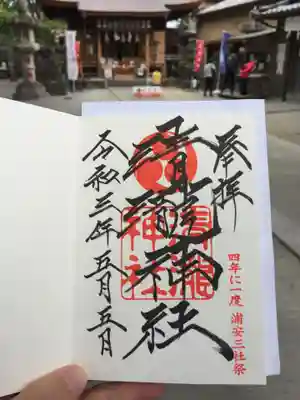 奉拝
清瀧神社
清瀧
神社
四年に一度 浦安三社祭
令和三年五月五日